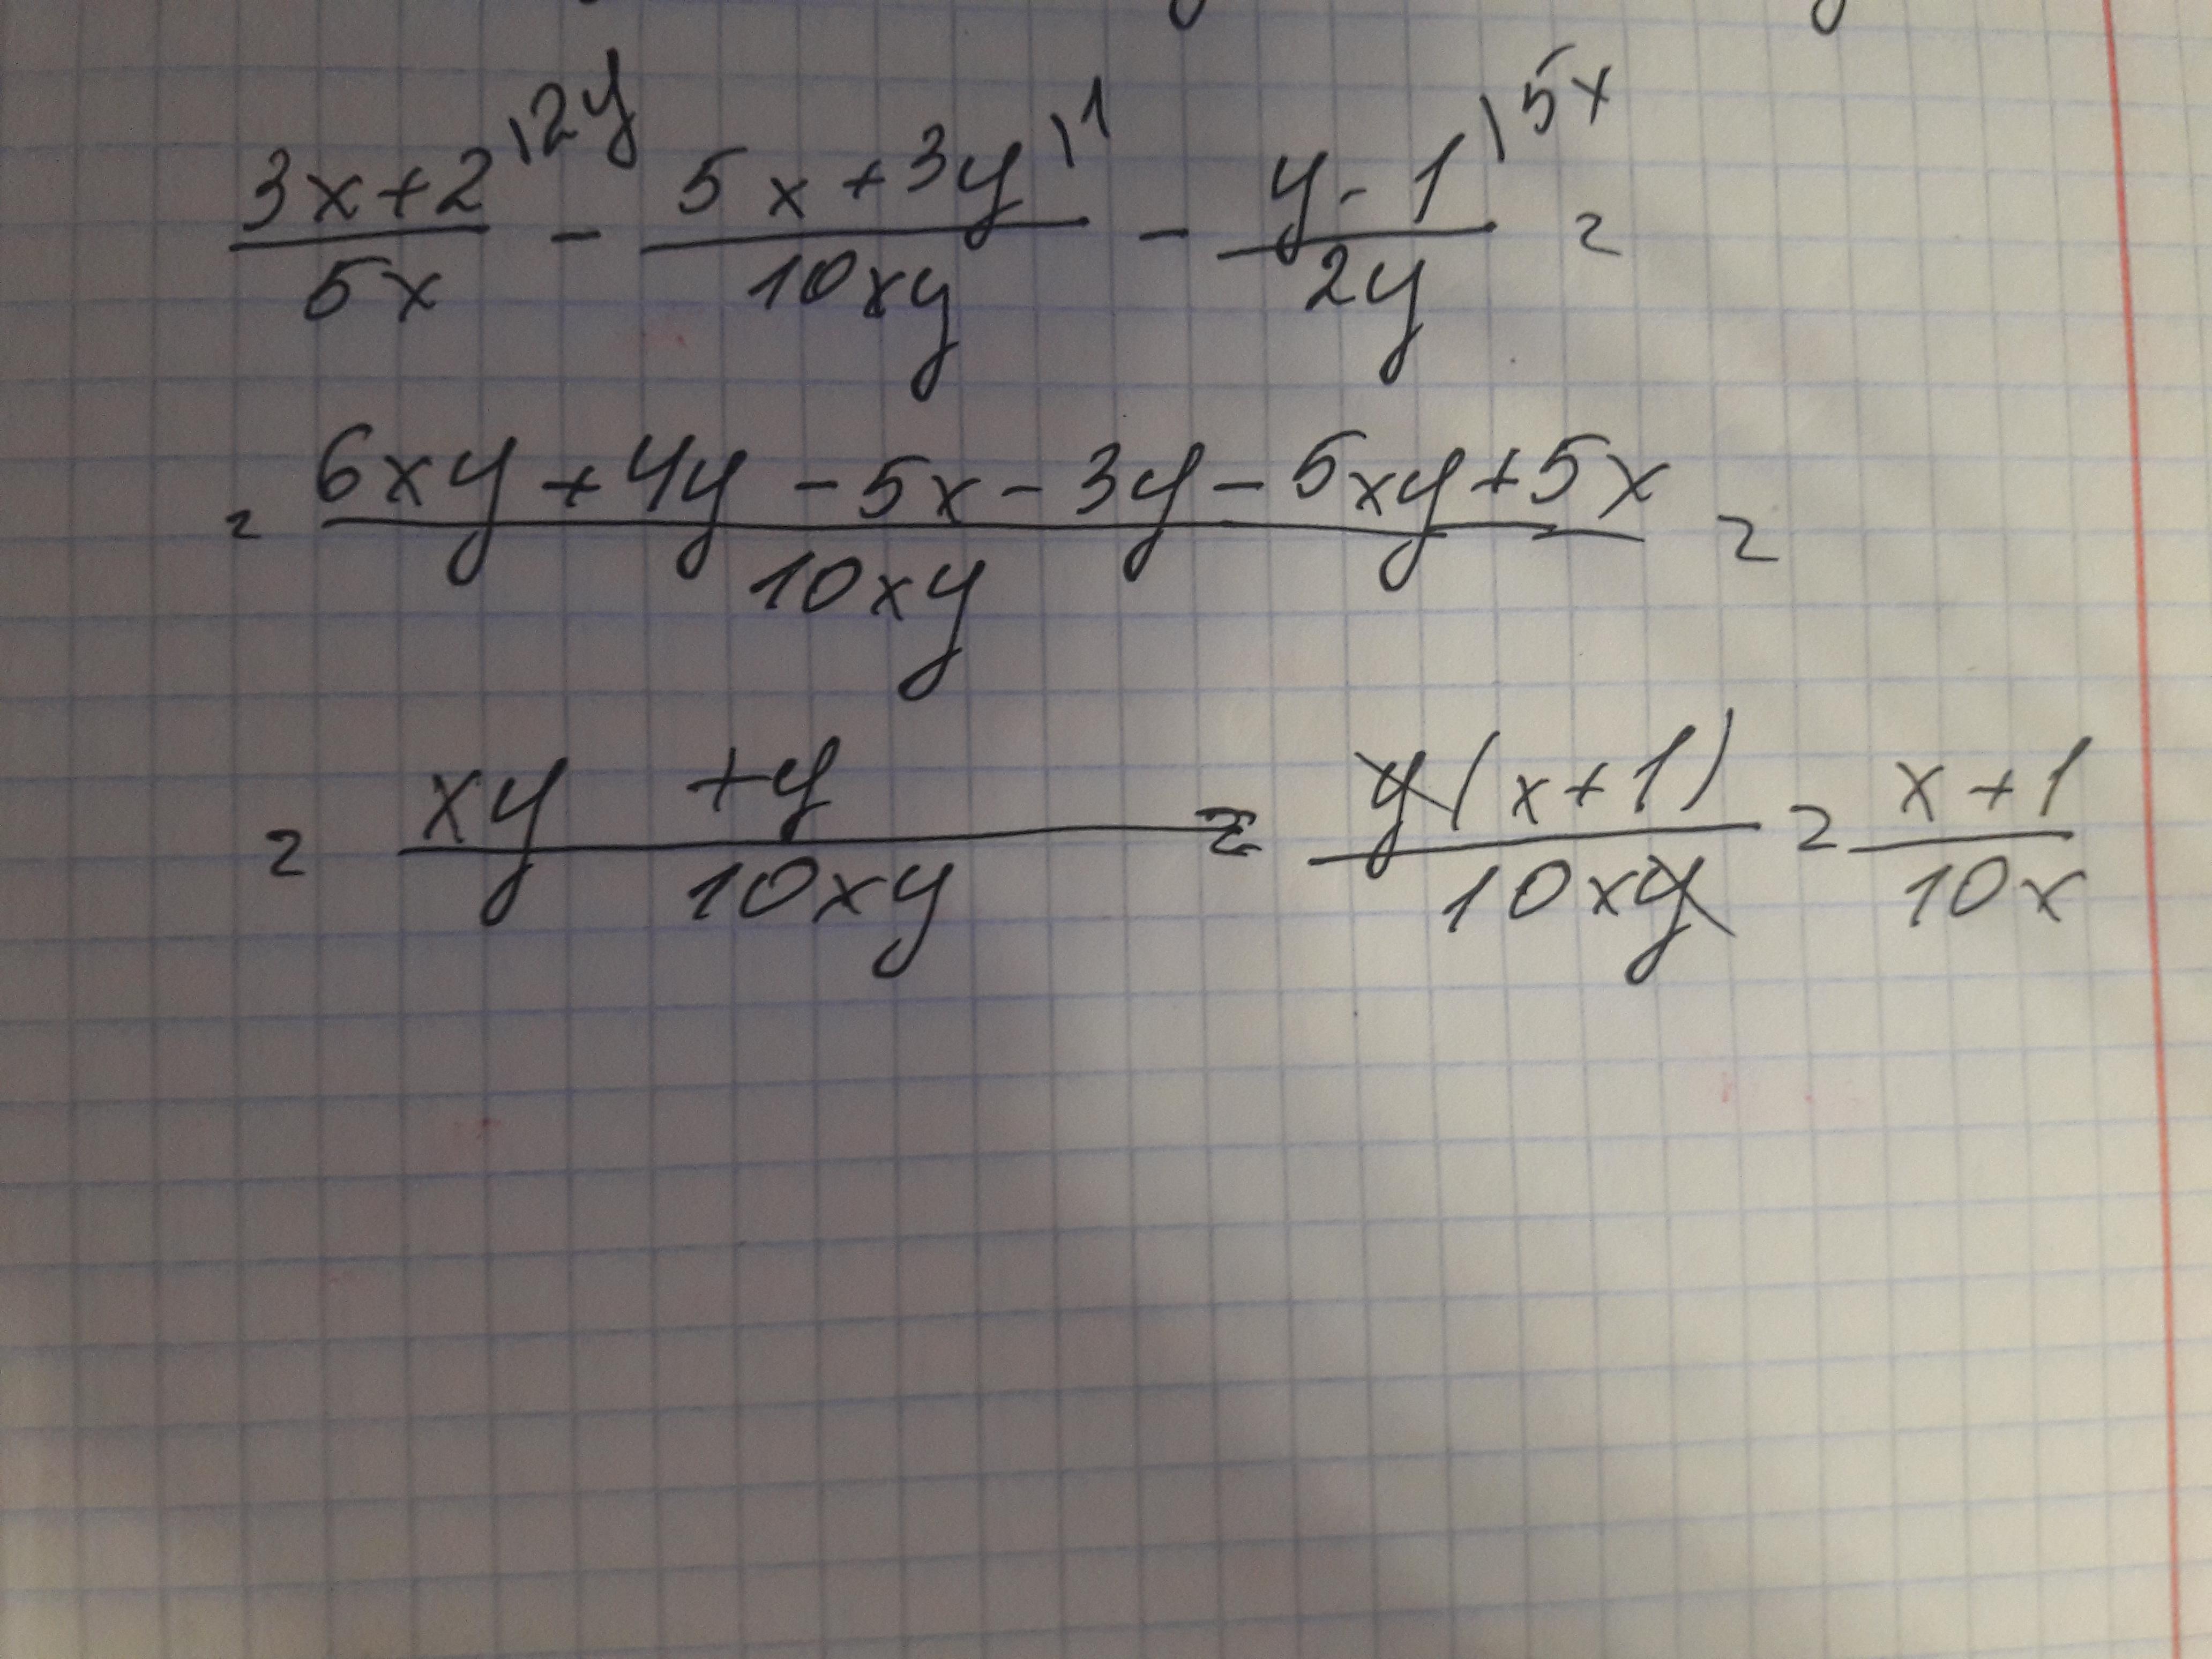 (3x+2)/(5x) \2y - (5x+3y)/(10xy) \1 - (y-1)/(2y) \5x =
= (6xy+4y-5x-3y-5xy+5x)/(10xy) =
= (xy +y)/(10xy) = y(x+1)/(10xy) = (x+1)/(10x)